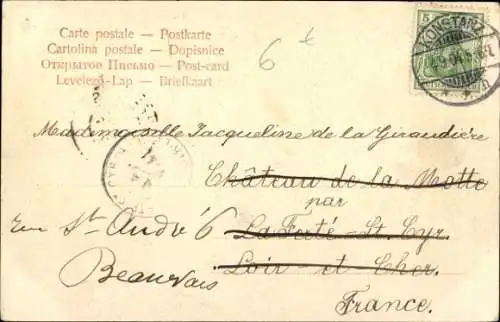 Carte postale — Postkarte
Cartolina postale — Dopisnice
Открытое Письмо — Post-card
Levelező-Lap — Briefkaart
6
5
KONSTANZ
Mademoiselle Jacqueline de la Giraudière
Château de la Motte
par
rue St André 6 La Ferté-St. Cyr.
Beauvais Loir-et-Cher.
France.